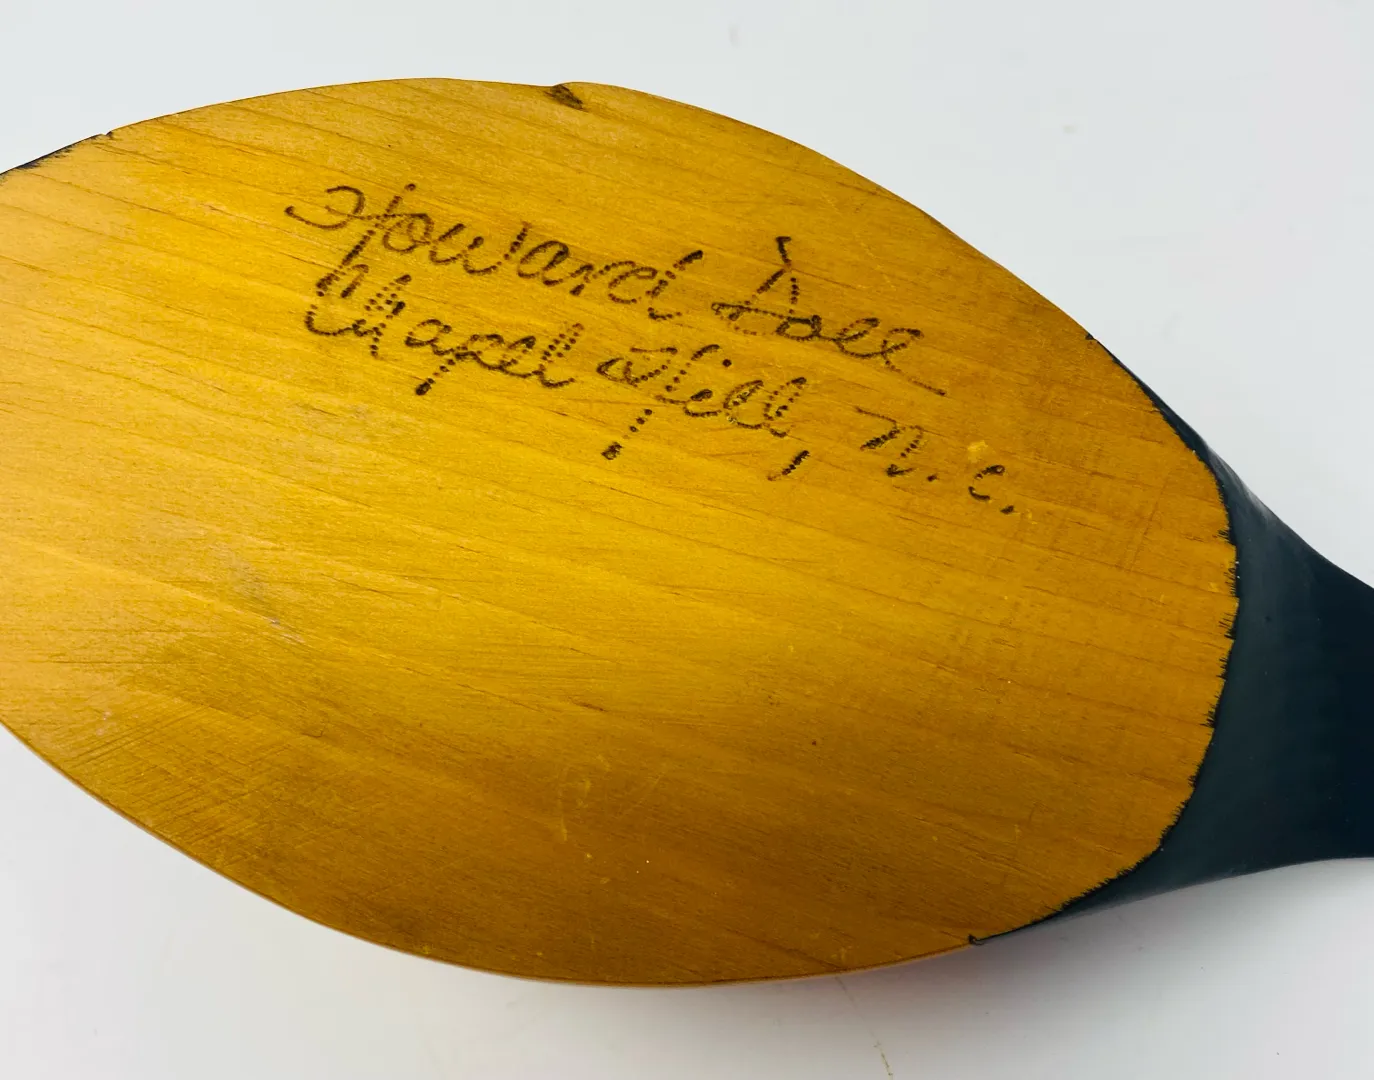 Howard Doll
Chapel Hill, N.C.